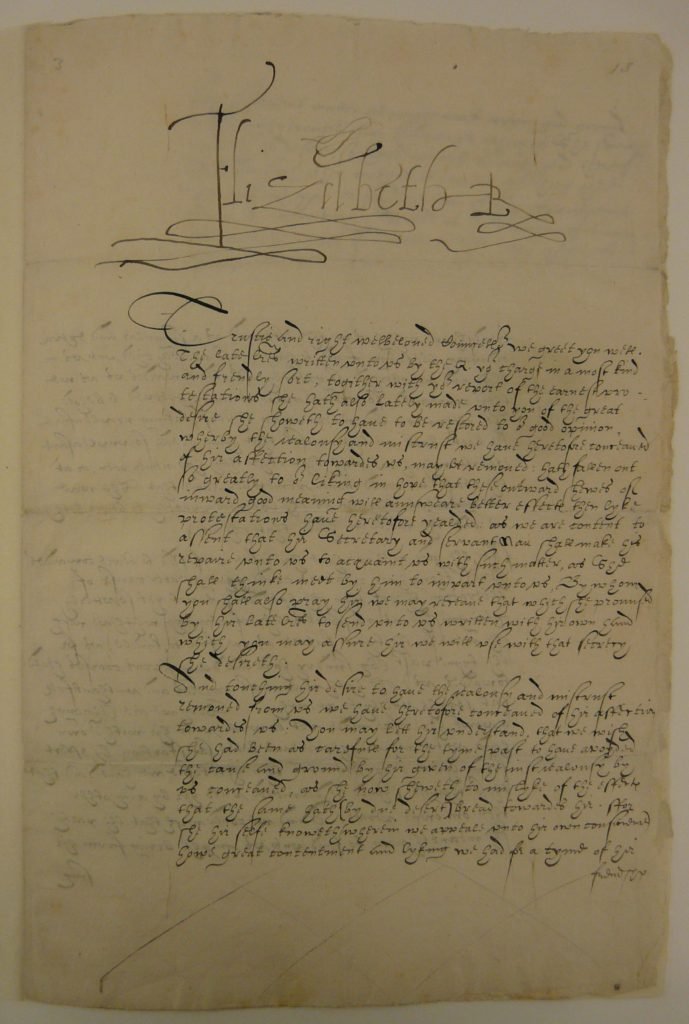 3
18
Elizabeth R
Trustie and right welbeloved Councellor we greet you well.
The late lres written unto us by the Q yor charge in a most kind
and frendly sort, together with yor report of the earnest pro-
testations she hath also lately made unto you of the great
desire she showeth to have to be restored to or good opinion,
wherby the iealousy and mistrust we have heretofore conceaved
of hir affection towardes us, may be removed: hath fallen out
so greatly to or liking in hope that these outward shewes of
inward good meaning will answeare better effects then lyke
protestations have heretofore yealded: as we are content to
assent that hir Secretary and servant Nau shall make his
repaire unto us to acquaint us with such matter, as she
shall thinke meet by him to impart unto us. By whom
you shall also pray hir we may receave that which she promised
by hir late lres to send unto us written with hir own hand
which you may assure hir we will use with that secrecy
she desireth.
And touching hir desire to have the iealousy and mistrust
removed from us we have heretofore conceaved of hir affection
towardes us: You may lett hir understand, that we wish
she had been as carefull for the tyme past to have avoyded
the cause and ground by hir given of the iust iealousy by
us conceaved, as she now sheweth to mislike of the effects
that the same hath (by due desert) bread towardes hir. For
she hir selfe knoweth wherein we appeale unto hir own conscience
howe great contentment and lyking we had for a tyme of hir
frendship